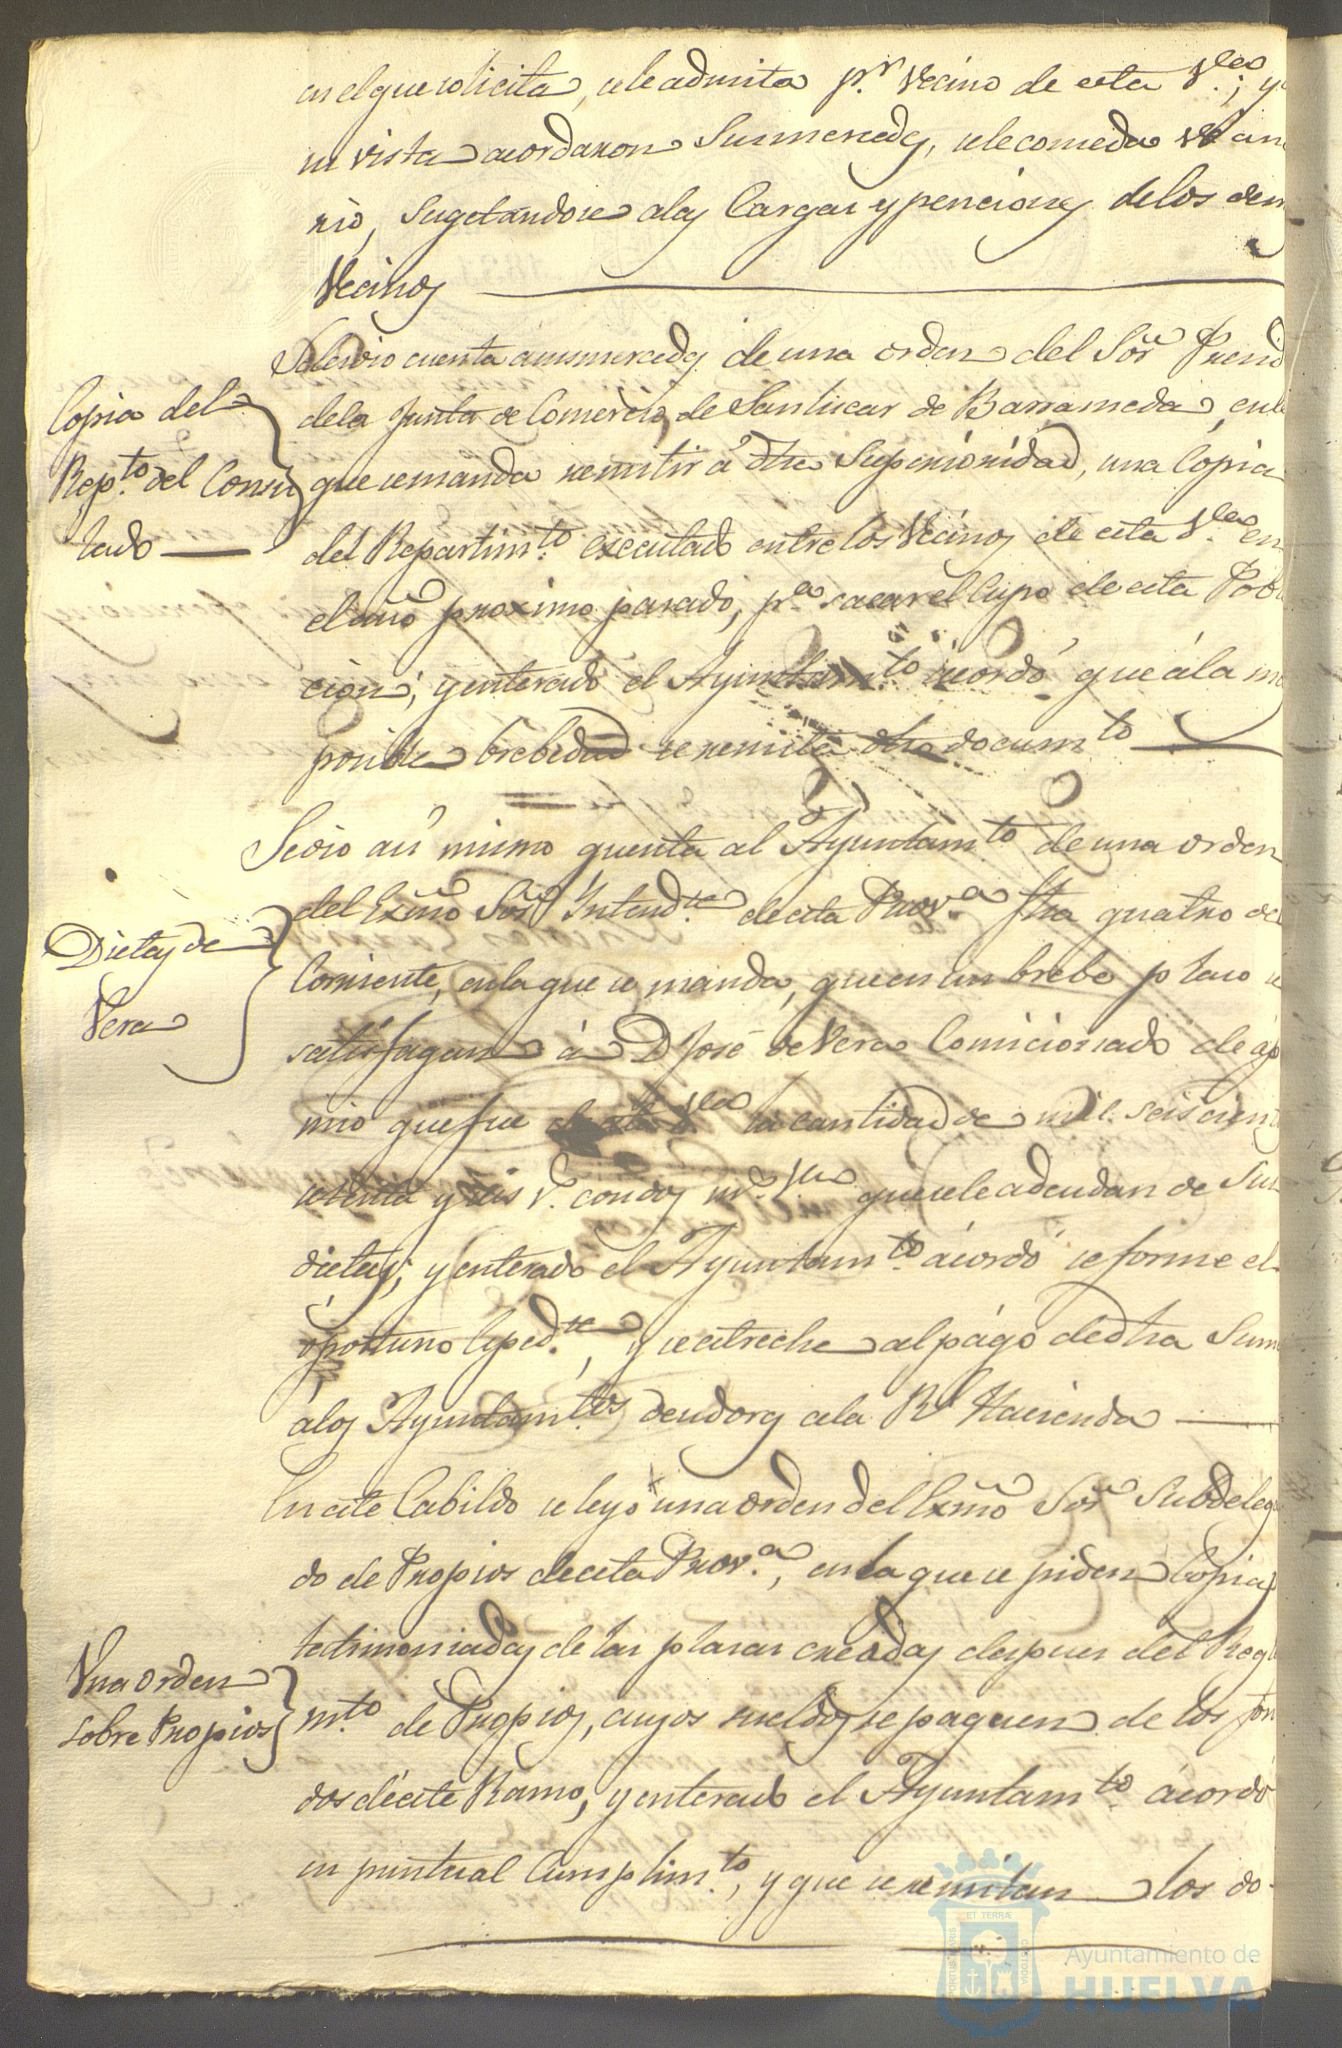 en el que solicita, se le admita p.r Vecino de esta V.ea; y en
su vista acordaron Sus mercedes, se le conceda Vecin
rio, sugetandose a las Cargas y penciones de los dem
Vecinos
Se dio cuenta a sus mercedes de una orden del Sor. Presid
Copia del
Rep.to del Consu
lado
de la Junta de Comercio de Sanlucar de Barrameda, en la
que se manda remitir á dha Superioridad, una Copia
del Repartim.to executado entre los Vecinos de esta V.ea en
el año proximo pasado, p.a sacar el Cupo de esta Pobl
cion; y enterado el Ayuntam.to acordó que á la m
posible brebedad se remita dho docum.to
Se dio asi mismo quenta al Ayuntam.to de una orden
Dietas de
Vera
del Exmo Sor. Intend.te de esta Prov.a fha quatro del
Corriente, en la que se manda, que en un brebe plaso se
satisfagan á D José de Vera Comicionado de ap
mio que fue de esta V.ea la cantidad de mil seiscien
setenta y seis r.s con dos mrs. vn que se le adeudan de Sus
dietas; y enterado el Ayuntam.to acordó se forme el
oportuno Exped.te, y se estreche al pago de dha Suma
a los Ayuntam.tos deudores a la Rl. Hacienda
En este Cabildo se leyo una orden del Exmo Sor. Subdelega
do de Propios de esta Prov.a, en la que se piden Copias
testimoniadas de las plasas creadas despues del Regla
Una orden
sobre Propios
m.to de Propios, cuyos sueldos se paguen de los fon
dos de este Ramo, y enterado el Ayuntam.to acordó
su puntual Cumplim.to, y que se remitan los do-
ET TERRAE
CUSTODIA
PORTUS MARIS
Ayuntamiento de
HUELVA